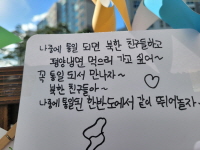 나중에 통일 되면 북한 친구들하고
평양냉면 먹으러 가고 싶어~
꼭 통일 되서 만나자~
북한 친구들아~
나중에 통일된 한반도에서 같이 뛰어놀자~